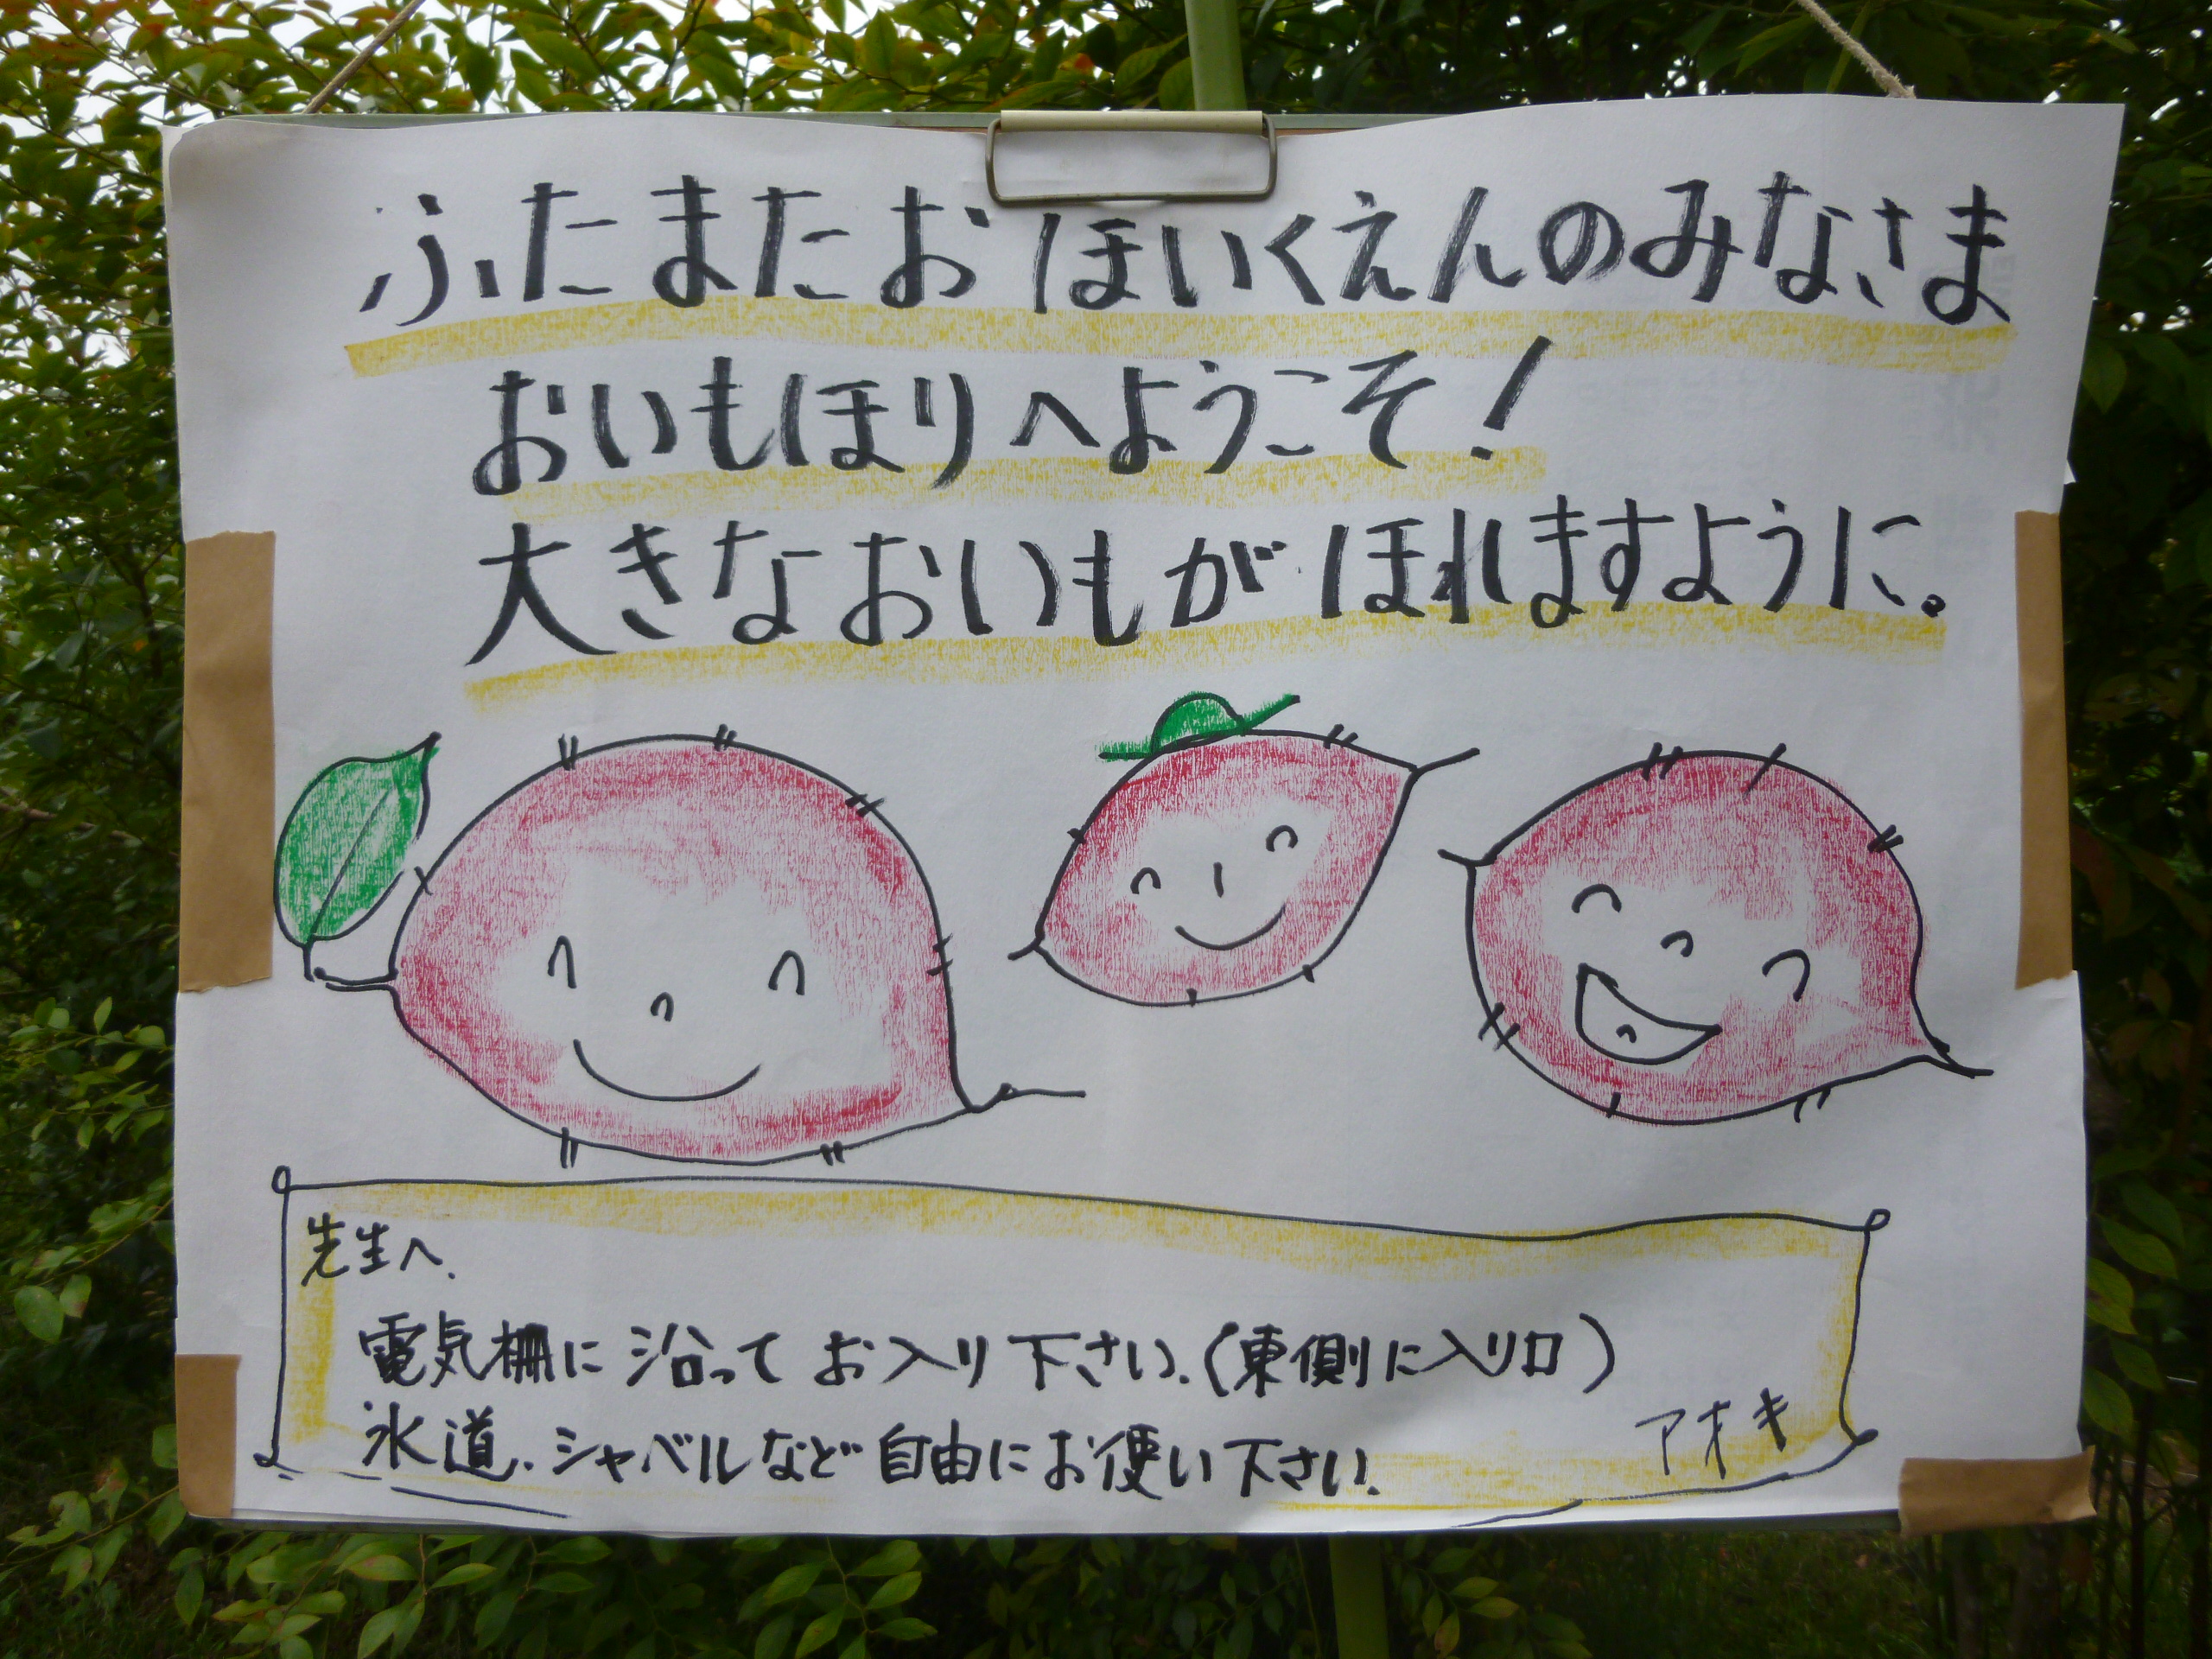 ふたまたおほいくえんのみなさま
おいもほりへようこそ!
大きなおいもがほれますように。
先生へ.
電気柵に沿ってお入り下さい.(東側に入り口)
水道.シャベルなど自由にお使い下さい.
アオキ